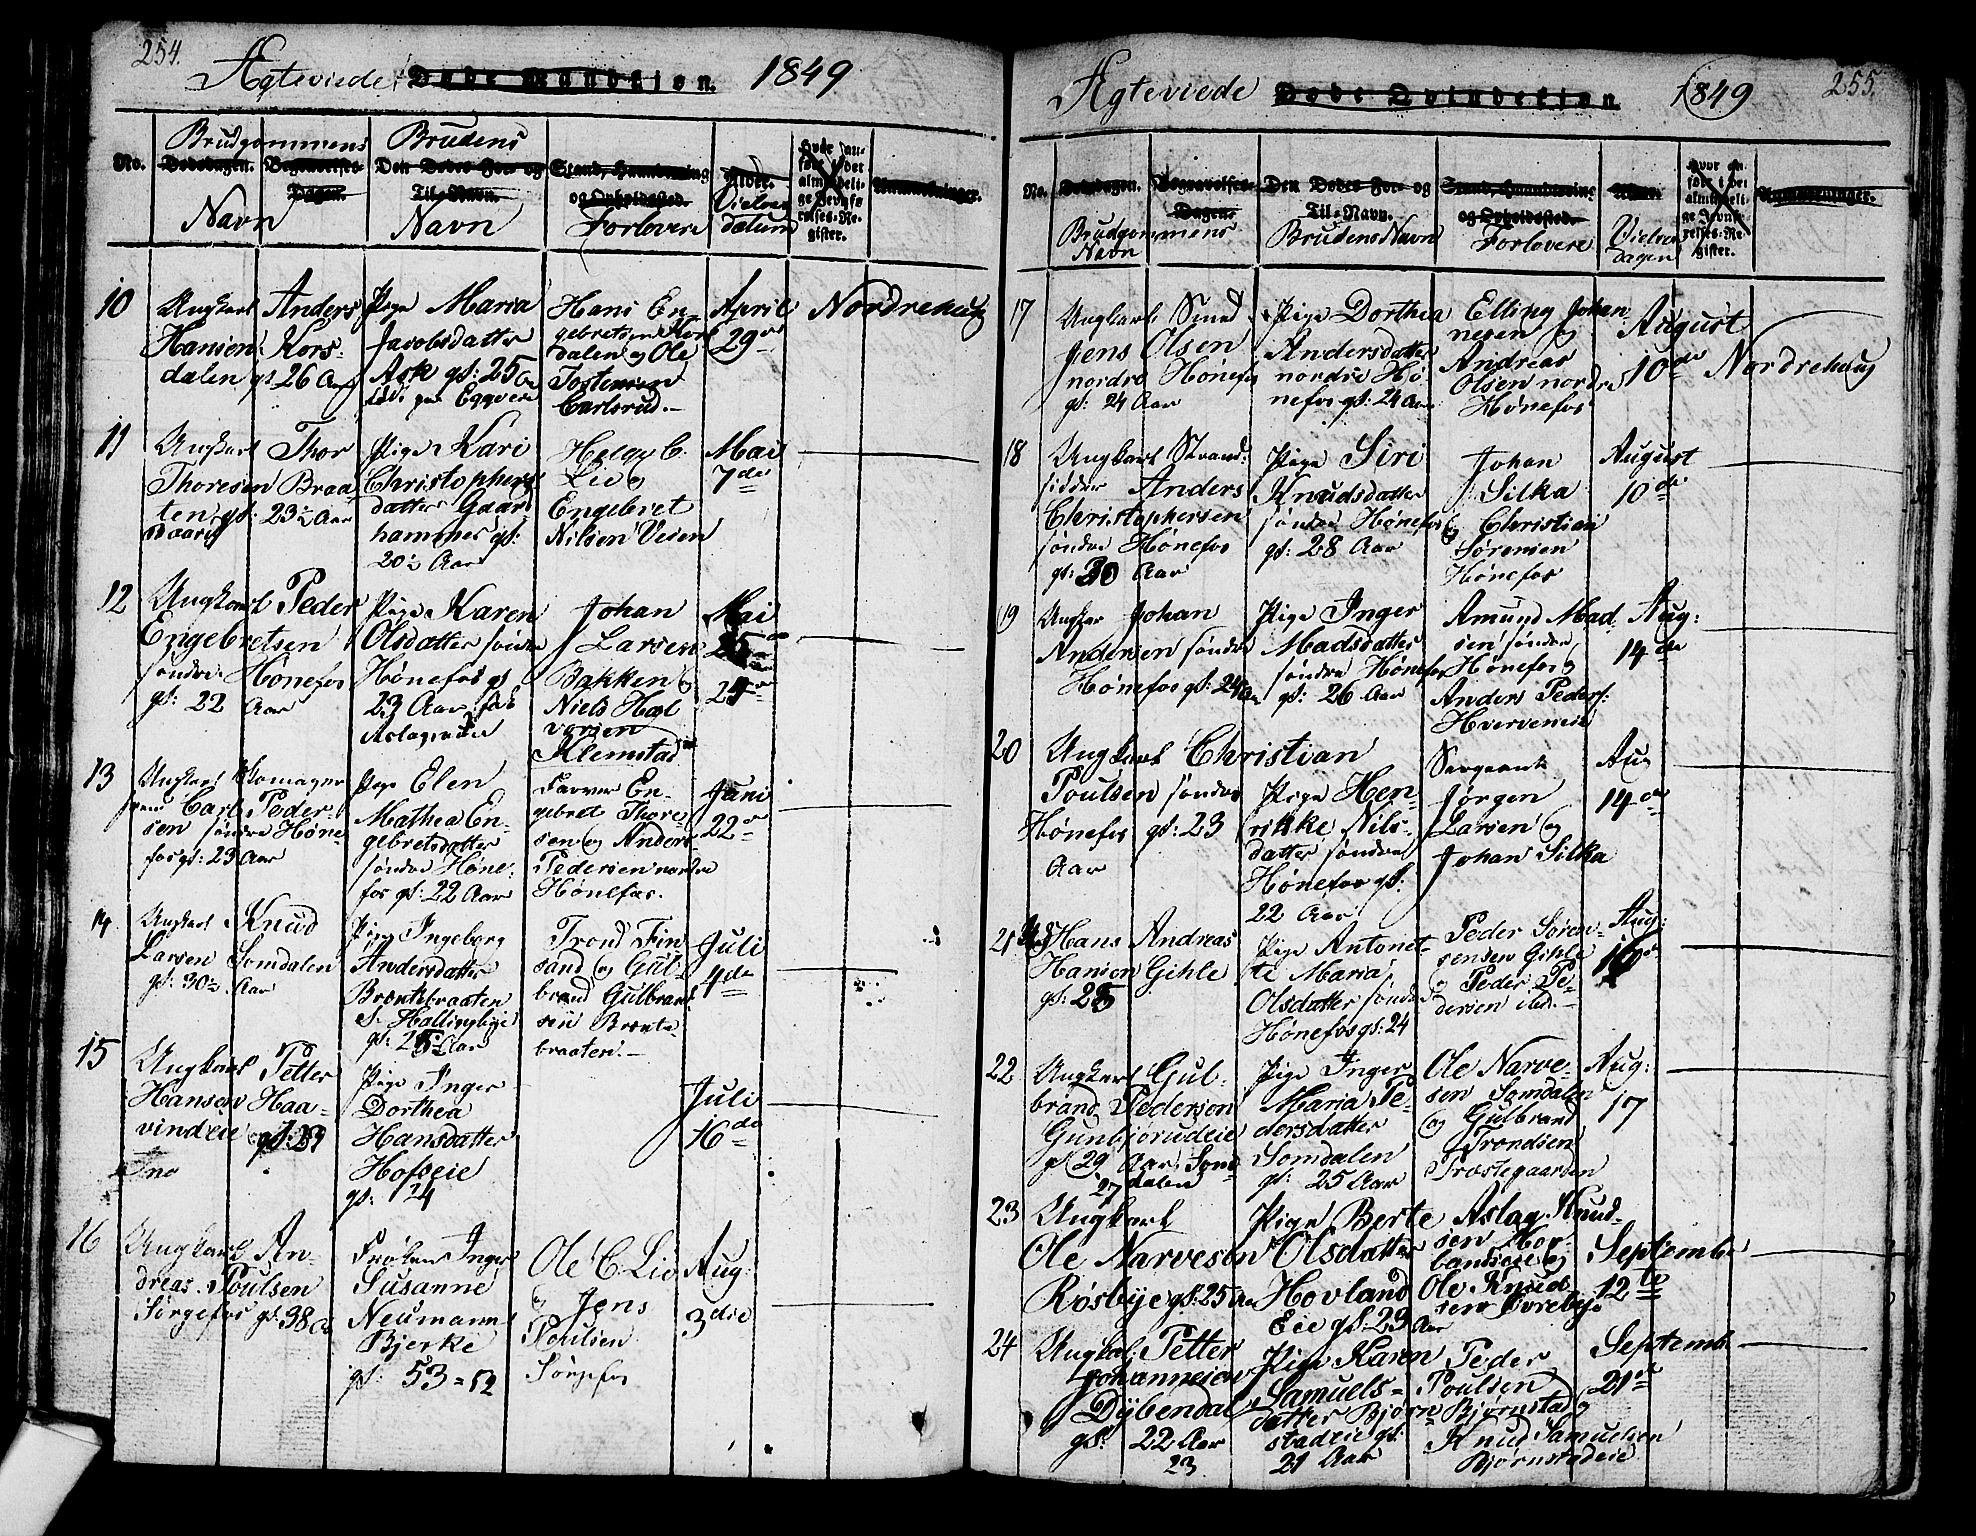 254.
Ægteviede Døde Mandkjøn. 1849
Brudgommens Brudens
No. Dødsdagen. Begravelses-Dagen. Den Dødes For- og Til-Navn. Stand, Haandtering og Opholdsted. Alder. Hvor anført i det almindelige Jevnførelses-Register. Anmærkninger.
Navn Navn Forlovere Vielses datum
10 Ungkarl Anders
Hansen Kors-
dalen gl: 26 Aar
Pige Maria
Jacobsdatter
Ask gl: 25 Aar
Hans En-
gebretsen Kors
dalen og Ole
Tostensen
Carlsrud.
April
29de
Norderehoug
11 Ungkarl Thor
Thoresen Braa-
ten gl: 23½ Aar
Pige Kari
Christophers
datter Gaar
hammer gl:
20½ Aar
Helge C.
Lie og
Engebret
Nilsen Veien
Mai
7de
12 Ungkarl Peder
Engebretsen
søndre Hønefos
gl: 22 Aar
Pige Karen
Olsdatter søndre
Hønefos gl
23 Aar
Johan
Larsen
Bakken og
Niels Hal
vorsen
Klemstad
Mai
13 Ungkarl Skomager
svend Carl Peder-
sen søndre Høne
fos gl: 23 Aar
Pige Elen
Mathea En-
gebretsdatter
søndre Høne-
fos gl: 22 Aar
Farver En-
gebret Thore-
sen og Anders
Pedersen nordre
Hønefos.
Juni
22de
14 Ungkarl Knud
Larsen Somdalen
gl: 30½ Aar
Pige Ingeborg
Andersdatter
Brentebraaten
S. Hallingbye
Trond Fin
sand og Gul-
brand Gulbrand
sen Brente
braaten.
Juli
4de
15 Ungkarl Petter
Hansen Haa-
vindeie gl: 29
Pige Inger
Dorthea
Hansdatter
Hofseie
gl: 24
Juli
16de
16 Ungkarl An-
dreas Poulsen
Sørgefos gl: 38 Aar
Frøken Inger
Susanne
Neumann
Bjerke
gl: 53
Ole C. Lie
og Jens
Poulsen
Sørgefos
Aug:
3die
Ægteviede Døde Qvindekjøn. 1849 255.
No. Dødsdagen. Begravelses-Dagen. Den Dødes For- og Til-Navn. Stand, Haandtering og Opholdsted. Alder. Hvor anført i det almindelige Jevnførelses-Register. Anmærkninger.
Brudgommens Navn Brudens Navn Forlovere Vielses Dagen
17 Ungkarl Smed
Jens Olsen
nordre Hønefos
gl: 24 Aar
Pige Dorthea
Andersdatter
nordre Hø
nefos gl: 24 Aar
Elling Johan
nesen og
Andreas
Olsen nordre
Hønefos
August
10de
Norderehoug
18 Ungkarl Strand-
sidder Anders
Christophersen
søndre Hønefos
gl: 30 Aar
Pige Siri
Knudsdatter
søndre Hønefos
gl: 28 Aar
Johan
Silka
og Christian
Sørensen
Hønefos
August
10de
19 Ungkar Johan
Andersen søndre
Hønefos gl: 24 Aar
Pige Inger
Madsdatter
søndre Hønefos
gl: 26 Aar
Amund Mad-
sen søndre
Hønefos og
Anders Peders:
Hverveneie
Aug:
14de
20 Ungkarl Christian
Poulsen søndre
Hønefos gl: 23
Aar
Pige Hen-
rikke Nils-
datter søndre
Hønefos gl:
22 Aar
Sergeant
Jørgen
Larsen og
Johan Silka
Aug
14de
21 Hans Andreas
Hansen Gihle
gl: 25
Pige Antonet-
te Maria
Olsdatter søndre
Hønefos gl: 24
Peder Søren-
sen Gihle
og Peder Pe-
dersen ibid.
Aug:
22 Ungkarl Gul-
brand Pedersen
Gunbjørudeie
gl: 29 Aar Som-
27 dalen
Pige Inger
Maria Pe-
dersdatter
Somdalen
gl: 25 Aar
Ole Narve-
sen Somdalen
og Gulbrand
Trondsen
Prostegaarden
Aug:
17
23 Ungkarl
Ole Narvesen
Røsbye gl: 25 Aar
Pige Berte
Olsdatter
Hovland
Eie gl: 23 Aar
Aslag Knud-
sen
og
Ole Knud
sen Øvrebye
Septembe
12te
24 Ungkal: Petter
Johannesen
Dybendal
gl: 22 Aar
23
Pige Karen
Samuels-
datter Bjørn
stadeie gl:
21 Aar
Peder
Poulsen
Bjørnstad og
Knud Samuelsen
Bjørnstadeie
Septemb.
21de